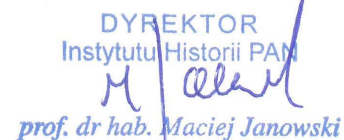 DYREKTOR
Instytutu Historii PAN
prof. dr hab. Maciej Janowski